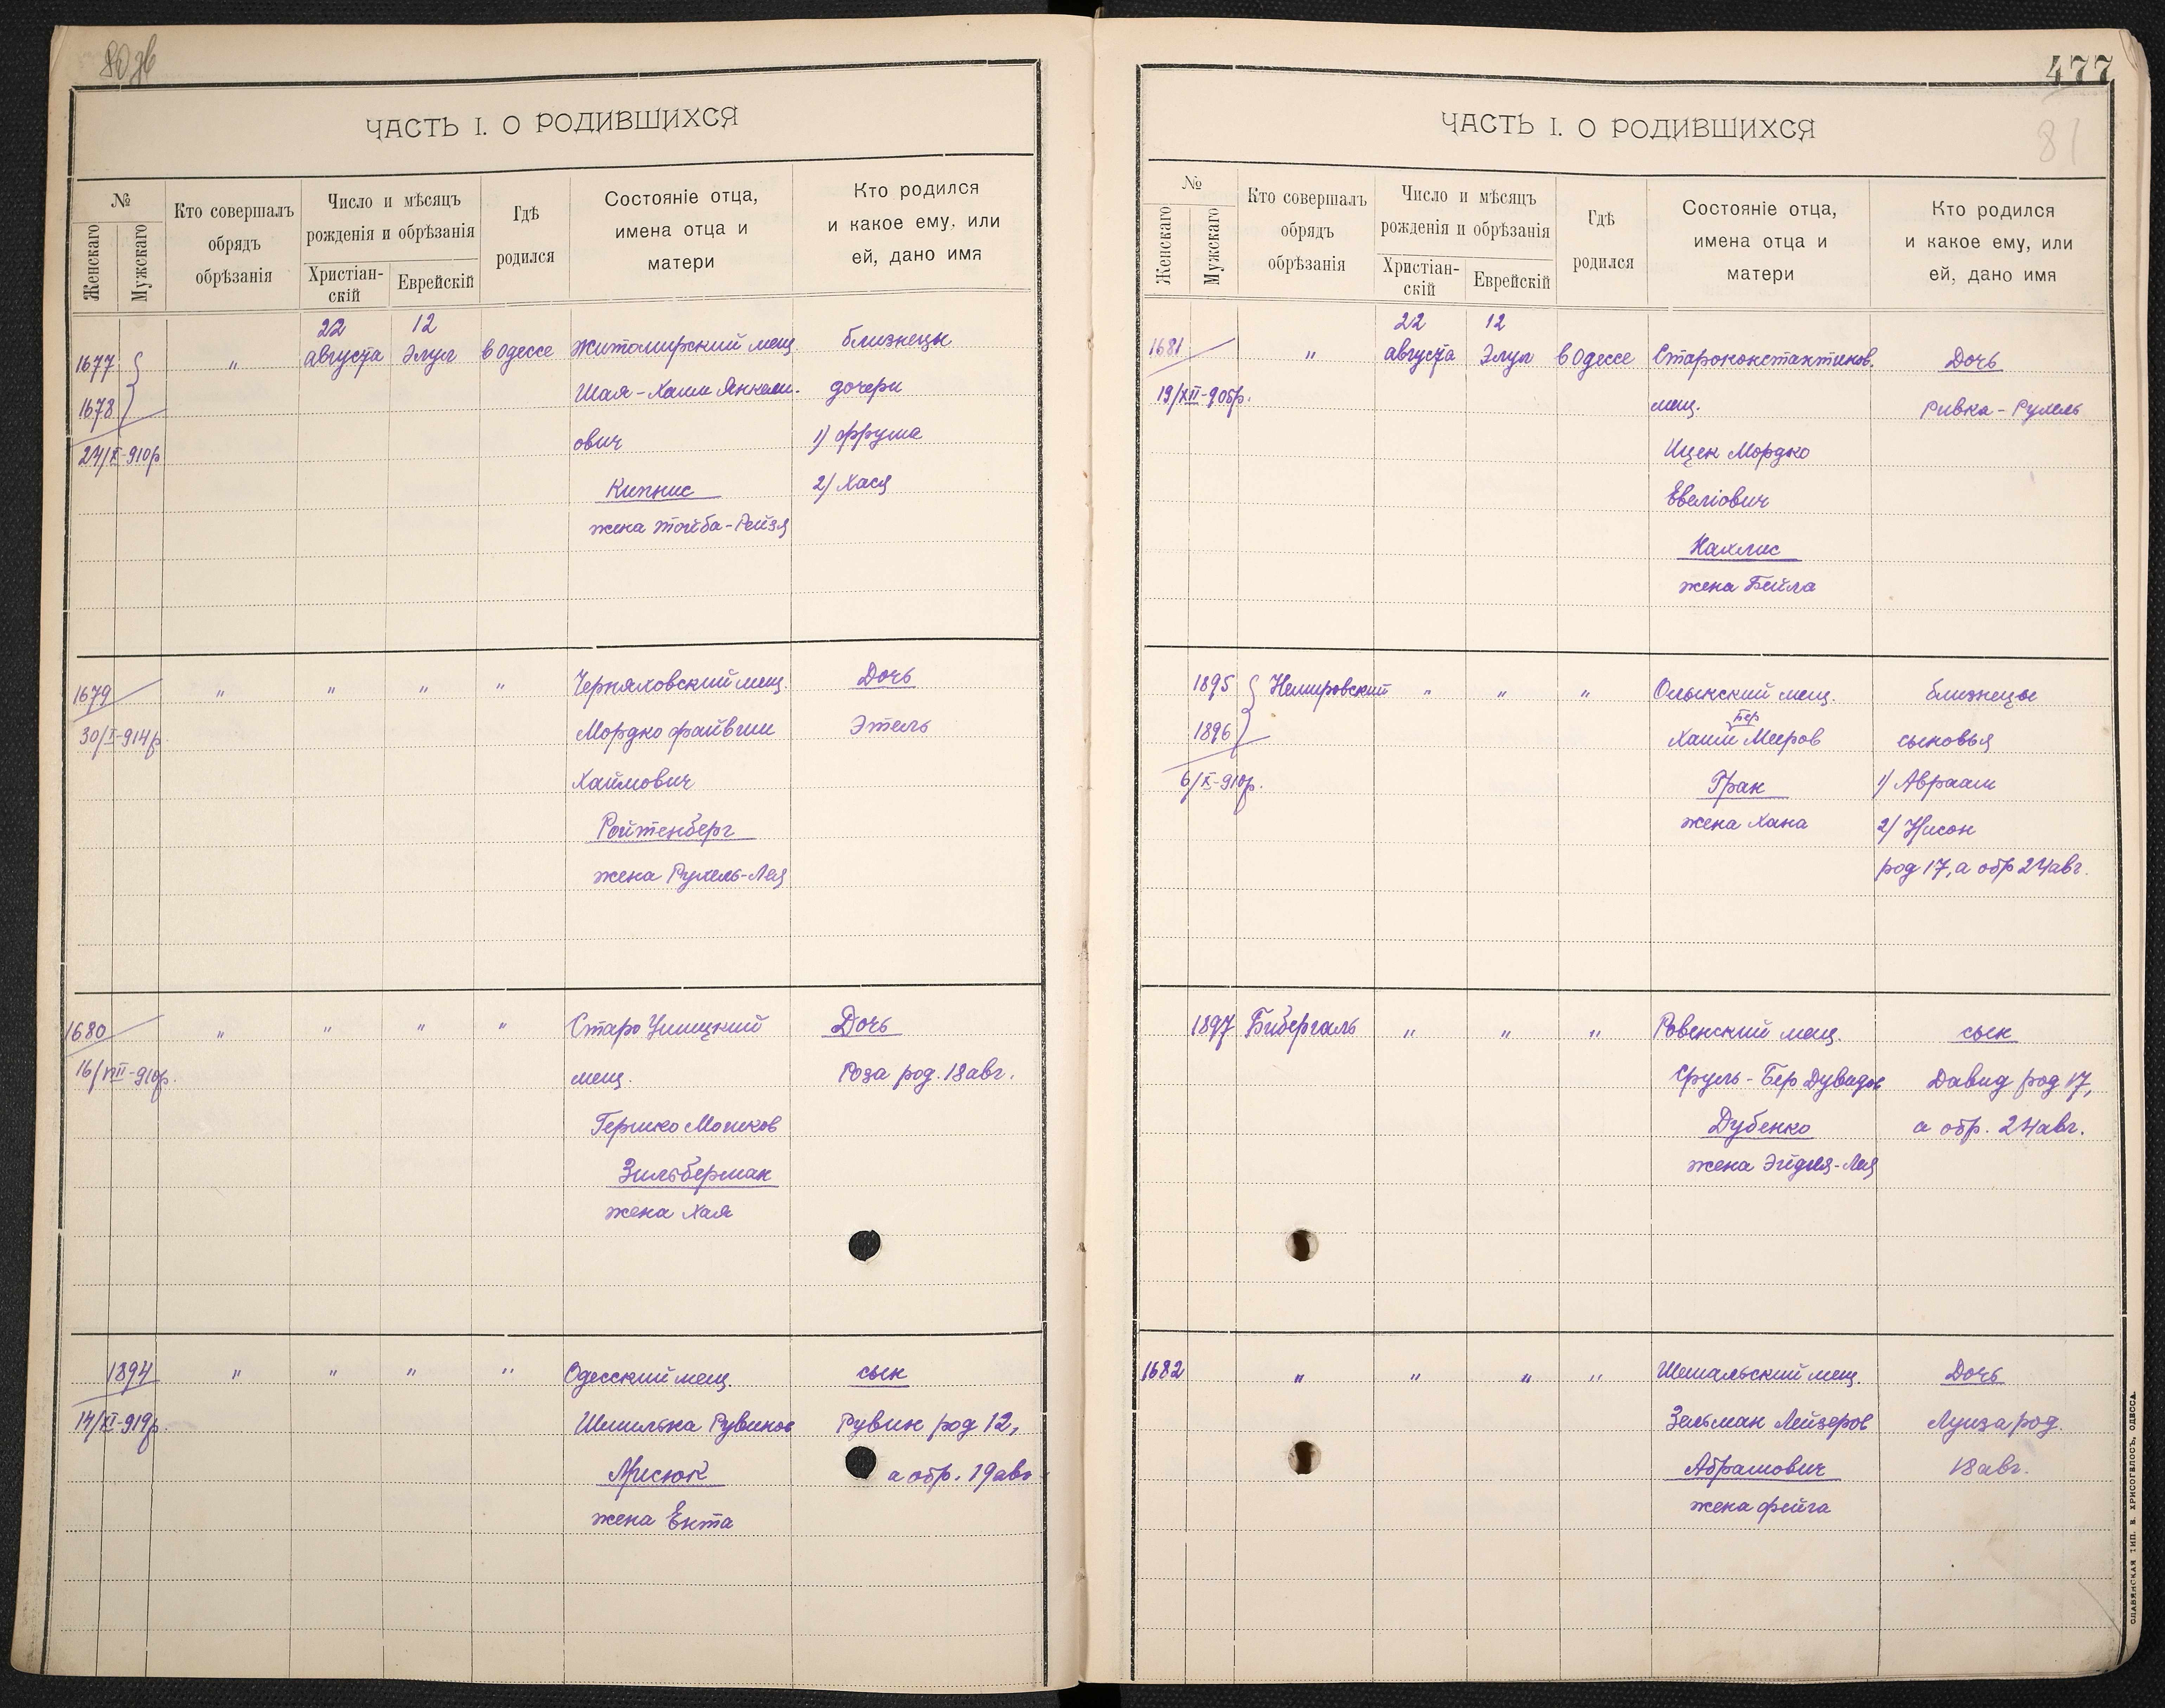 ЧАСТЬ I. О РОДИВШИХСЯ
№
Женскаго
Мужскаго
Кто совершалъ
обрядъ
обрѣзанія
Число и мѣсяцъ
рожденія и обрѣзанія
Христіан-
скій
Еврейскій
Гдѣ
родился
Состояніе отца,
имена отца и
матери
Кто родился
и какое ему, или
ей, дано имя
22 12
1677 " августа Элул в Одессе Житомирский мещ близнецы
1678 Шая-Хаим Янкели- дочери
24/X-910р ович 1) Фрума
Кипнис 2) Хася
жена Тойба-Рейзя
1679 " " " " Черняховский мещ. Дочь
30/I-914р. Мордко Файвиш Этель
Хаимович
Ройтенберг
жена Рухель-Лея
1680 " " " " Старо Ушицкий Дочь
16/VIII-910р. мещ. Роза род. 18 авг.
Гершко Мошков
Зильберман
жена Хая
1894 " " " " Одесский мещ. сын
14/XI-919р. Шмилька Рувинов Рувин род 12,
а обр. 19 авг
жена Ента
477
81
ЧАСТЬ I. О РОДИВШИХСЯ
№
Женскаго
Мужскаго
Кто совершалъ
обрядъ
обрѣзанія
Число и мѣсяцъ
рожденія и обрѣзанія
Христіан-
скій
Еврейскій
Гдѣ
родился
Состояніе отца,
имена отца и
матери
Кто родился
и какое ему, или
ей, дано имя
22 12
1681 " августа Элул в Одессе Староконстантинов. Дочь
мещ. Ривка-Рухель
Ицек Мордко
Евеліович
Нахлис
жена Бейла
1895 Немировский " " " Олыкский мещ. близнецы
Бер
1896 Хаим Мееров сыновья
6/X-910р. Грак 1) Авраам
жена Хана 2) Нисон
род 17, а обр 24 авг.
1897 Бибергаль " " " Ровенский мещ. сын
Сруль-Бер Дувидов Давид род 17,
Дубенко а обр. 24 авг.
жена Эйдля-Лея
1682 " " " " мещ. Дочь
Зельман Лейзеров Луиза род.
Абрамович 18 авг.
жена Фейга
СЛАВЯНСКАЯ ТИП. В. ХРИСОГЕЛОСЪ, ОДЕССА.